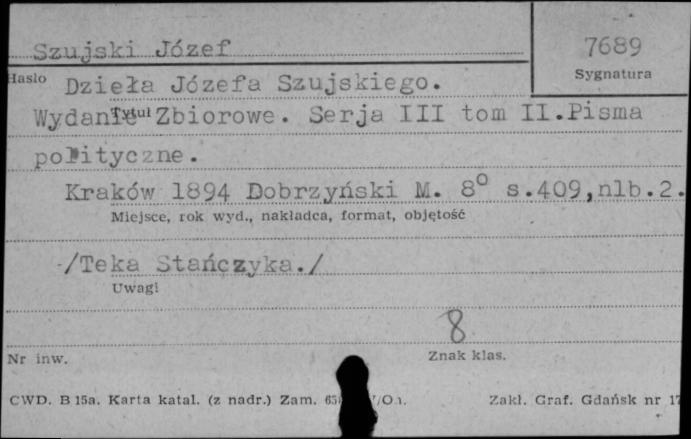 Szujski Józef
7689
Sygnatura
Hasło
Dzieła Józefa Szujskiego.
Tytuł
Wydanie Zbiorowe. Serja III tom II.Pisma
polityczne.
Kraków 1894 Dobrzyński M. 8° s.409,nlb.2.
Miejsce, rok wyd., nakładca, format, objętość
/Teka Stańczyka./
Uwagi
8
Nr inw.
Znak klas.
CWD. B 15a. Karta katal. (z nadr.) Zam.
Zakł. Graf. Gdańsk nr 17